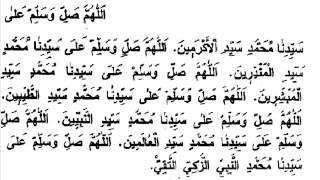 اَللّٰهُمَّ صَلِّ وَسَلِّمْ عَلٰى
سَيِّدِنَا مُحَمَّدٍ سَيِّدِ الْأَكْرَمِينَ. اَللّٰهُمَّ صَلِّ وَسَلِّمْ عَلَى سَيِّدِنَا مُحَمَّدٍ
سَيِّدِ الْمُنْذِرِينَ. اَللّٰهُمَّ صَلِّ وَسَلِّمْ عَلَى سَيِّدِنَا مُحَمَّدٍ سَيِّدِ
الْمُبَشِّرِينَ. اَللّٰهُمَّ صَلِّ وَسَلِّمْ عَلَى سَيِّدِنَا مُحَمَّدٍ سَيِّدِ الطَّيِّبِينَ.
اَللّٰهُمَّ صَلِّ وَسَلِّمْ عَلَى سَيِّدِنَا مُحَمَّدٍ سَيِّدِ النَّبِيِّينَ. اَللّٰهُمَّ
صَلِّ وَسَلِّمْ عَلَى سَيِّدِنَا مُحَمَّدٍ سَيِّدِ الْعَالَمِينَ. اَللّٰهُمَّ صَلِّ وَسَلِّمْ عَلَى
سَيِّدِنَا مُحَمَّدٍ النَّبِيِّ الزَّكِيِّ التَّقِيِّ.